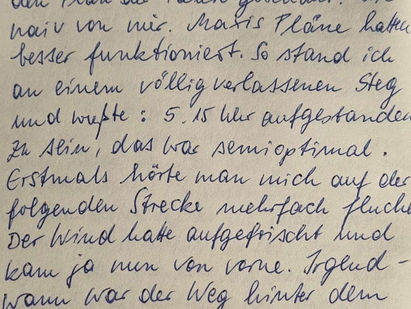 naiv von mir. Maxis Pläne hatten
besser funktioniert. So stand ich
an einem völlig verlassenen Steg
und wußte: 5.15 Uhr aufgestanden
zu sein, das war semioptimal.
Erstmals hörte man mich auf der
folgenden Strecke mehrfach fluche
Der Wind hatte aufgefrischt und
kam ja nun von vorne. Irgend-
wann war der Weg hinter dem